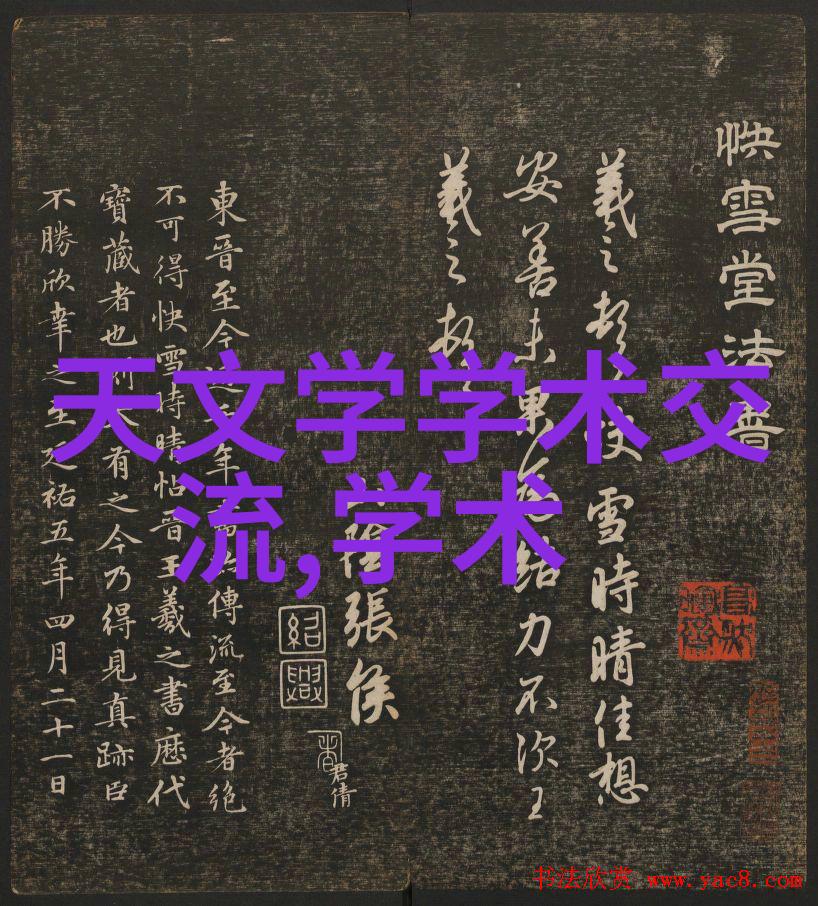 快雪堂法書
羲之頓首快雪時晴佳想
安善未果為結力不次王
羲之頓
陰張侯
紹興
君倩
東晉至今近千年傳流至今者絕
不可得快雪時晴帖晉王羲之書歷代
寶藏者也刻本有之今乃得見真跡臣
不勝欣幸之至延祐五年四月二十一日
天文学学术交
流,学术
书法欣赏 www.yac8.com